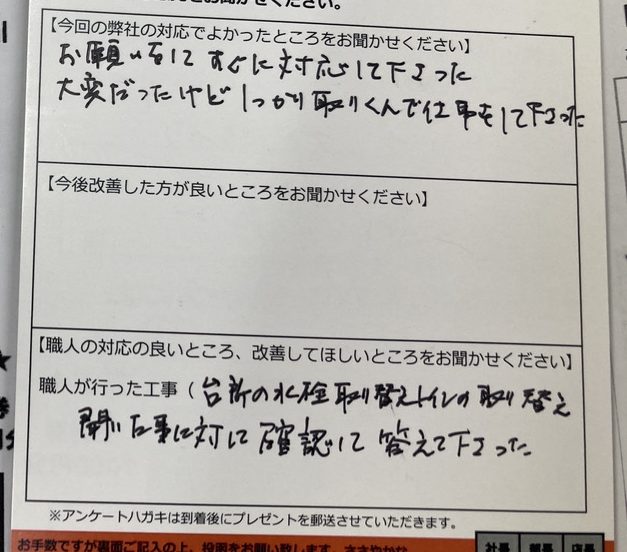 聞かせください。
【今回の弊社の対応でよかったところをお聞かせください】
お願いをして すぐに対応して下さった
大変だったけど しっかり取りくんで仕事をして下さった
【今後改善した方が良いところをお聞かせください】
【職人の対応の良いところ、改善してほしいところをお聞かせください】
職人が行った工事（台所の水栓取り替えトイレの取り替え
仕事に対して確認して 答えて下さった
※アンケートハガキは到着後にプレゼントを郵送させていただきます。
お手数ですが裏面ご記入の上、投函をお願い致します。ささやかな
社長 部長 店長